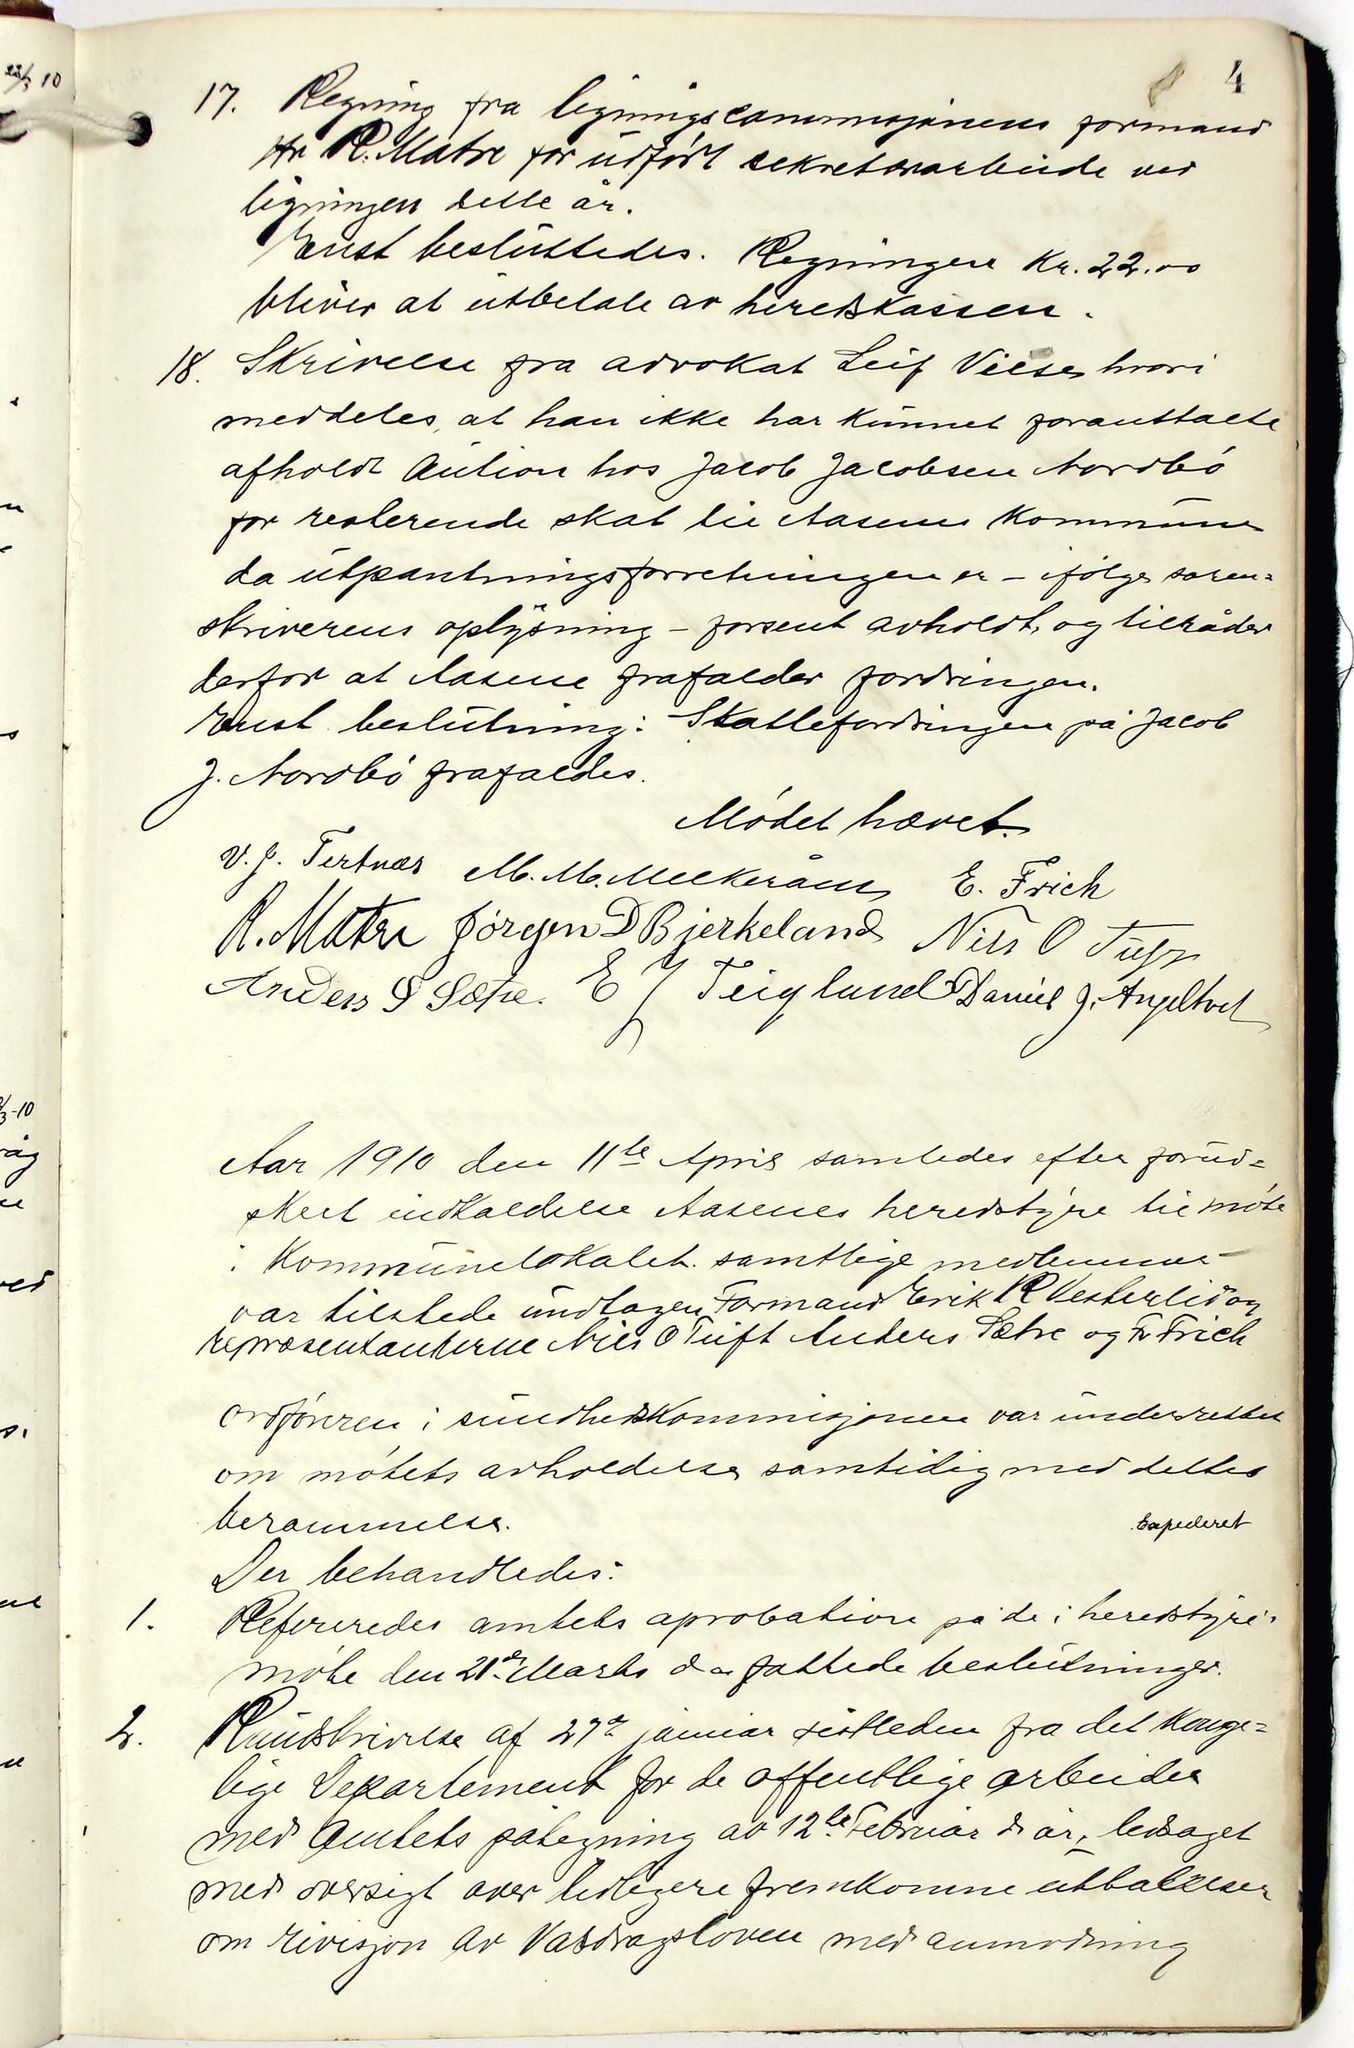 4
17. Regning fra ligningscommisjonens formand
Hr R. Matre for udført sekretærarbeide ved
ligningen dette år.
Enst besluttedes. Regningen Kr. 22.00
bliver at utbetale av heredskassen.
18. Skrivelse fra advokat Leif hvori
meddeles, at han ikke har kunnet foranstalte
afholdt Aution hos Jacob Jacobsen Nordbö
for resterende skat til Aasene Kommune
da utpantningsforretningen er - ifölge soren=
skriverens oplysning - forsent avholdt, og tilråder
derfor at Aasene frafalder fordringen.
Enst beslutning: Skattefordringen på Jacob
J. Nordbö frafaldes.
Mödet hævet.
V. J. Tertnæs M. M. E. Frich
R. Matre Jörgen D Bjerkeland Nils O Tuft
Anders S Sætre. E J Teiglund Daniel J. Angeltvet
Aar 1910 den 11te April samledes efter forud=
skeet indkaldelse Aasenes heredstyre til möte
i Kommunelokalet. samtlige medlemmer
var tilstede undtagen Formand Erik R Vesterlid og
repræsentanterne Nils O Tuft Anders Sætre og Fr Frich
Ordföreren i sundhedskommisjonen var underrettet
om mötets avholdelse samtidig med dettes
berammelse.
Expederet
Der behandledes:
1. Refereredes amtets aprobation på de i heredstyre=
möte den 21de Marts d a fattede beslutninger.
2. Rundskrivelse af 27de januar sistleden fra det Konge=
lige Departement for de offentlige arbeider
med Amtets påtegning av 12te Februar d år, ledsaget
med oversigt over tidligere fremkomne uttalelser
om revisjon av Vasdragsloven med anmodning
22/3 10